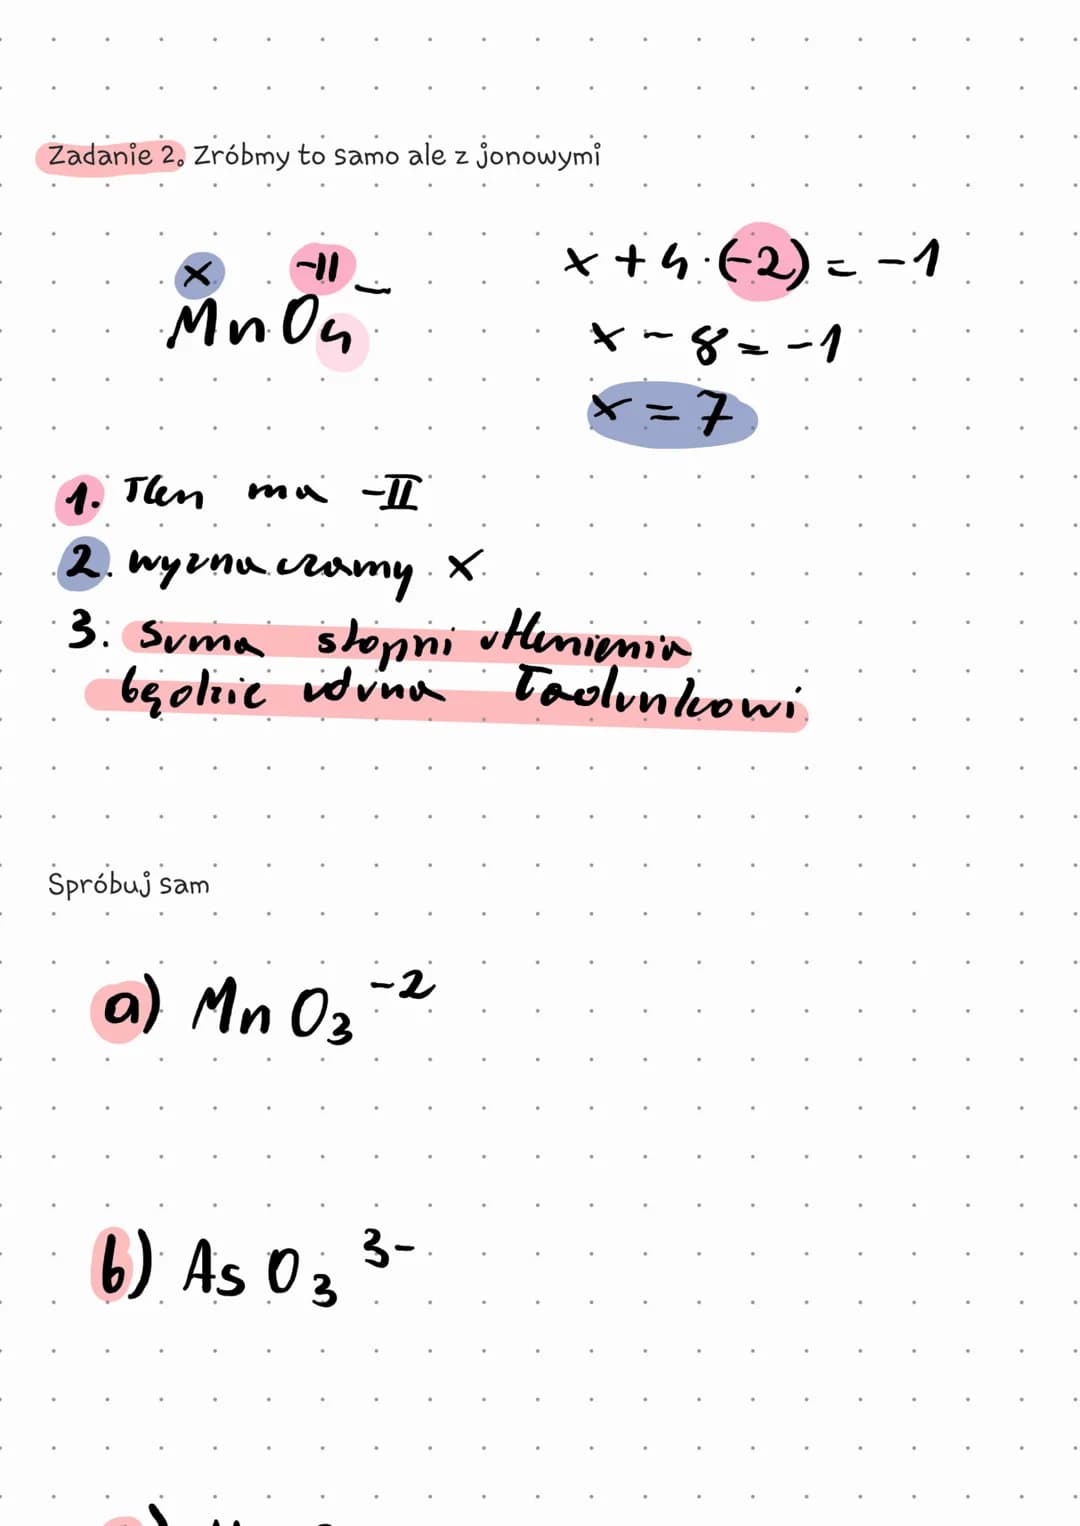 Zadanie 2. Zróbmy to samo ale z jonowymi
x -II
MnO4 -
x + 4 · (-2) = -1
x - 8 = -1
x = 7
1. Tlen ma -II
2. wyznaczamy x
3. Suma stopni utlenienia
będzie równa ładunkowi
Spróbuj sam
a) MnO3 -2
b) AsO3 3-